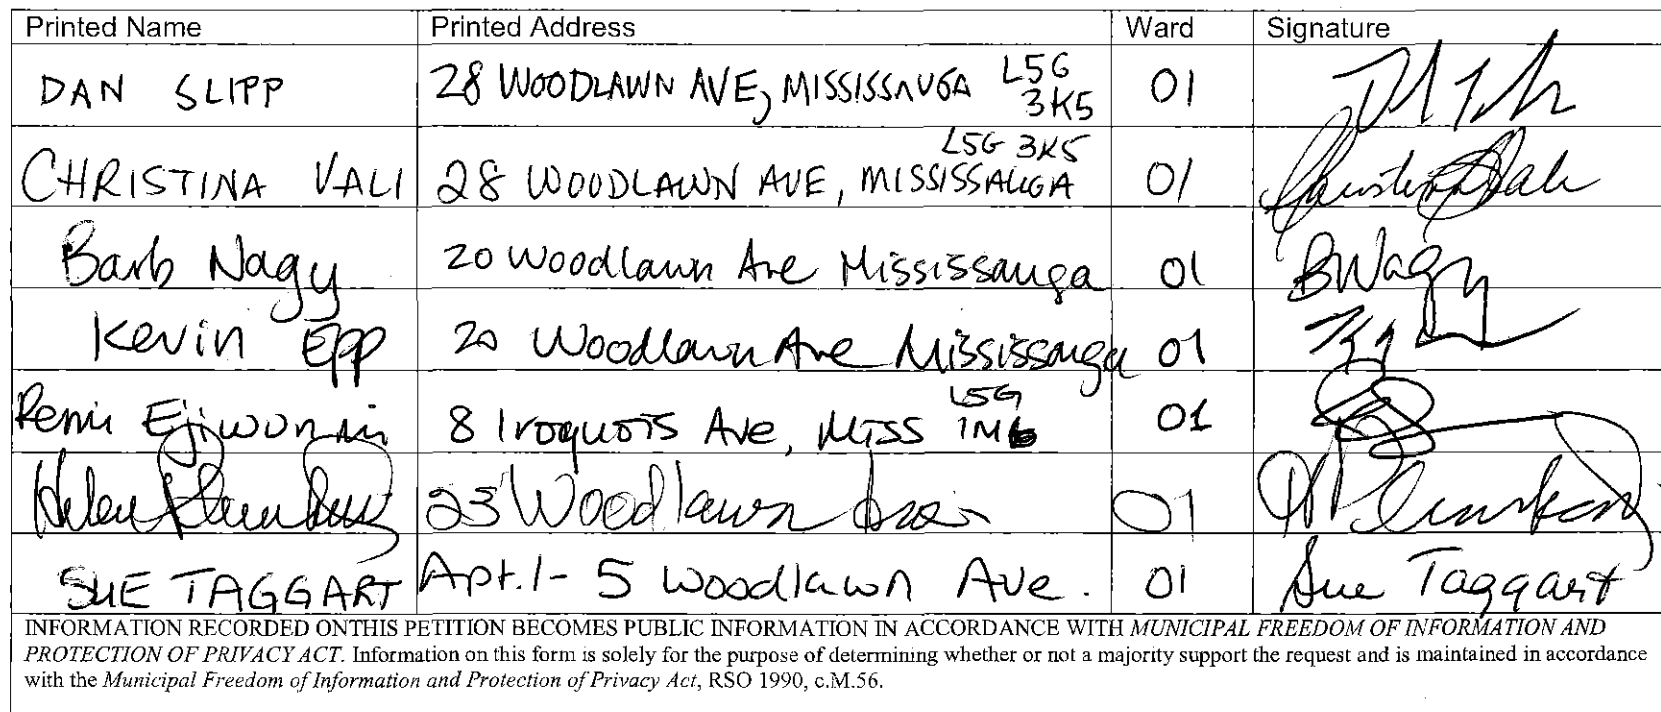 Printed Name Printed Address Ward Signature
DAN SLIPP 28 WOODLAWN AVE, MISSISSAUGA L5G 3K5 01
CHRISTINA VALI 28 WOODLAWN AVE, MISSISSAUGA L5G 3K5 01
Barb Nagy 20 Woodlawn Ave Mississauga 01 BNagy
Kevin Epp 20 Woodlawn Ave Mississauga 01
Remi Ejiwunmi 8 Iroquois Ave, Miss L5G 1M6 01
Helen 23 Woodlawn 01
SUE TAGGART Apt.1- 5 Woodlawn Ave. 01 Sue Taggart
INFORMATION RECORDED ONTHIS PETITION BECOMES PUBLIC INFORMATION IN ACCORDANCE WITH MUNICIPAL FREEDOM OF INFORMATION AND
PROTECTION OF PRIVACY ACT. Information on this form is solely for the purpose of determining whether or not a majority support the request and is maintained in accordance
with the Municipal Freedom of Information and Protection of Privacy Act, RSO 1990, c.M.56.